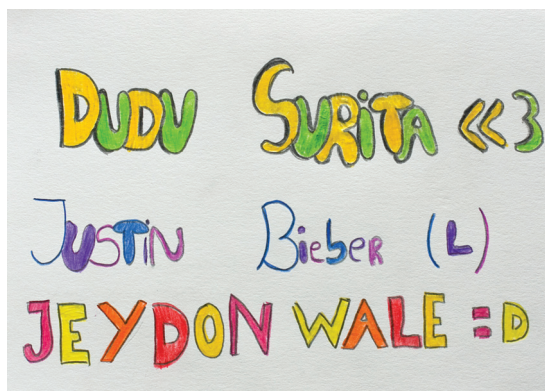 DUDU SURiTA <<3
JUSTiN Bieber (L)
JEYDON WALE =D